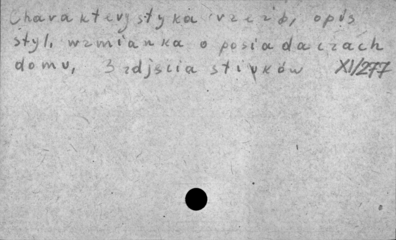 Charakterystyka rzeźb, opis
styl. wzmianka o posiadaczach
domu, 3 zdjęcia XI/277